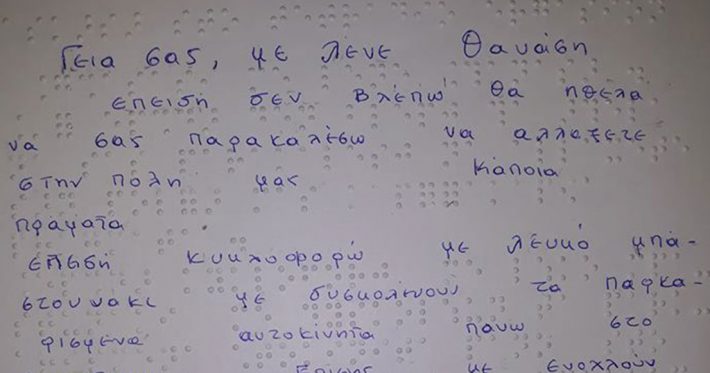 Γεια σας, με λένε Θανάση
επειδή δεν βλέπω θα ηθελα
να σας παρακαλέσω να αλλαξετε
στην πόλη μας κάποια
πραματα
επειδή κυκλοφορώ με λευκό μπα-
στουνάκι με δυσκολευουν τα παρκα-
ρισμενα αυτοκίνητα πανω στο
Επισης με ενοχλούν